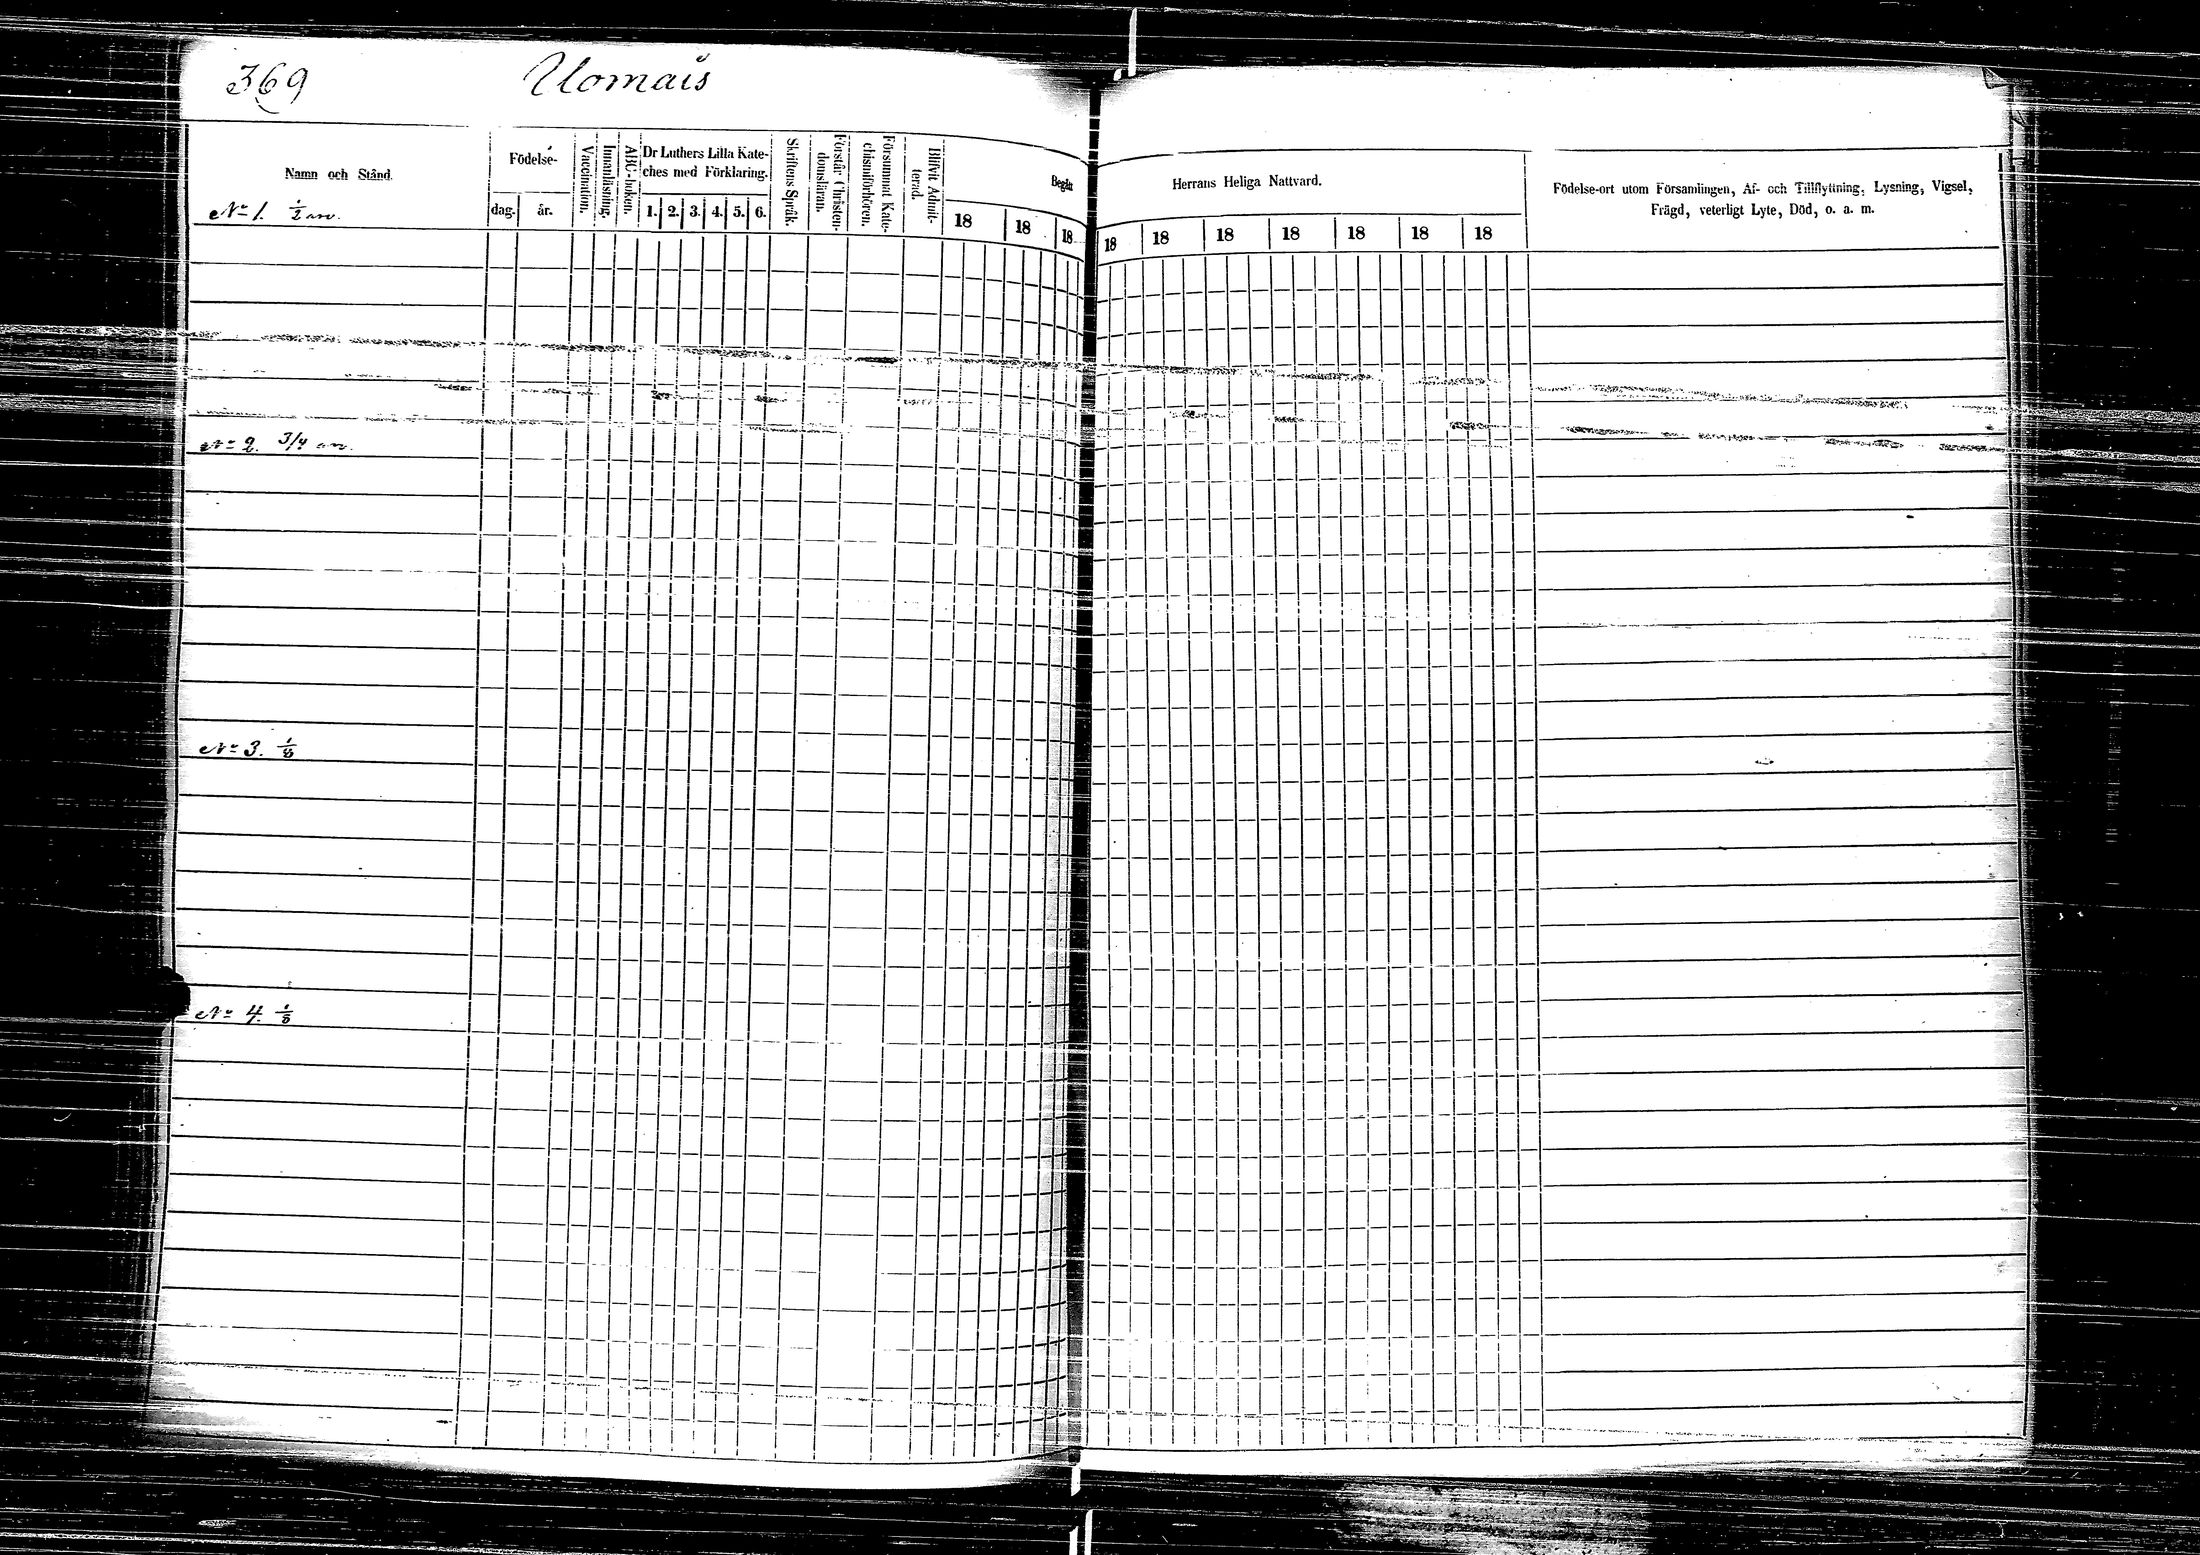 369 Uomais
Namn och Stånd.
Födelse-
dag. år.
Vaccination.
Innanläsning.
ABC-boken.
Dr Luthers Lilla Kate-
ches med Förklaring.
1. 2. 3. 4. 5. 6.
Skriftens Språk.
Förstår Christen-
domsläran.
Försummat Kate-
chismiförhören.
Blifvit Admit-
terad.
Begått
18 18 18
Herrans Heliga Nattvard.
18 18 18 18 18 18 18
Födelse-ort utom Församlingen, Af- och Tillflyttning, Lysning, Vigsel,
Frägd, veterligt Lyte, Död, o. a. m.
No 1. 1/2 
No 2. 3/4 
No 3. 1/8
No 4. 1/8